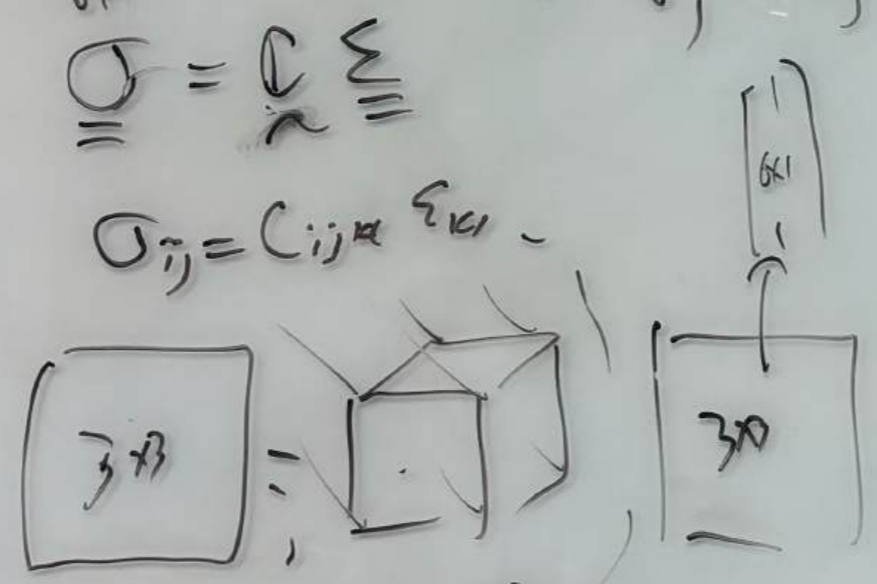 σ = C ε
σij = Cijkl εkl
6x1
3x3 = 3x3